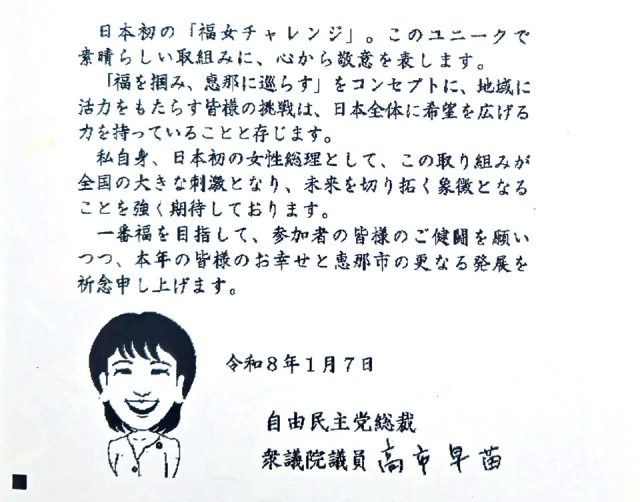 日本初の「福女チャレンジ」。このユニークで
素晴らしい取組みに、心から敬意を表します。
「福を掴み、恵那に巡らす」をコンセプトに、地域に
活力をもたらす皆様の挑戦は、日本全体に希望を広げる
力を持っていることと存じます。
私自身、日本初の女性総理として、この取り組みが
全国の大きな刺激となり、未来を切り拓く象徴となる
ことを強く期待しております。
一番福を目指して、参加者の皆様のご健闘を願い
つつ、本年の皆様のお幸せと恵那市の更なる発展を
祈念申し上げます。
令和8年1月7日
自由民主党総裁
衆議院議員 高市早苗